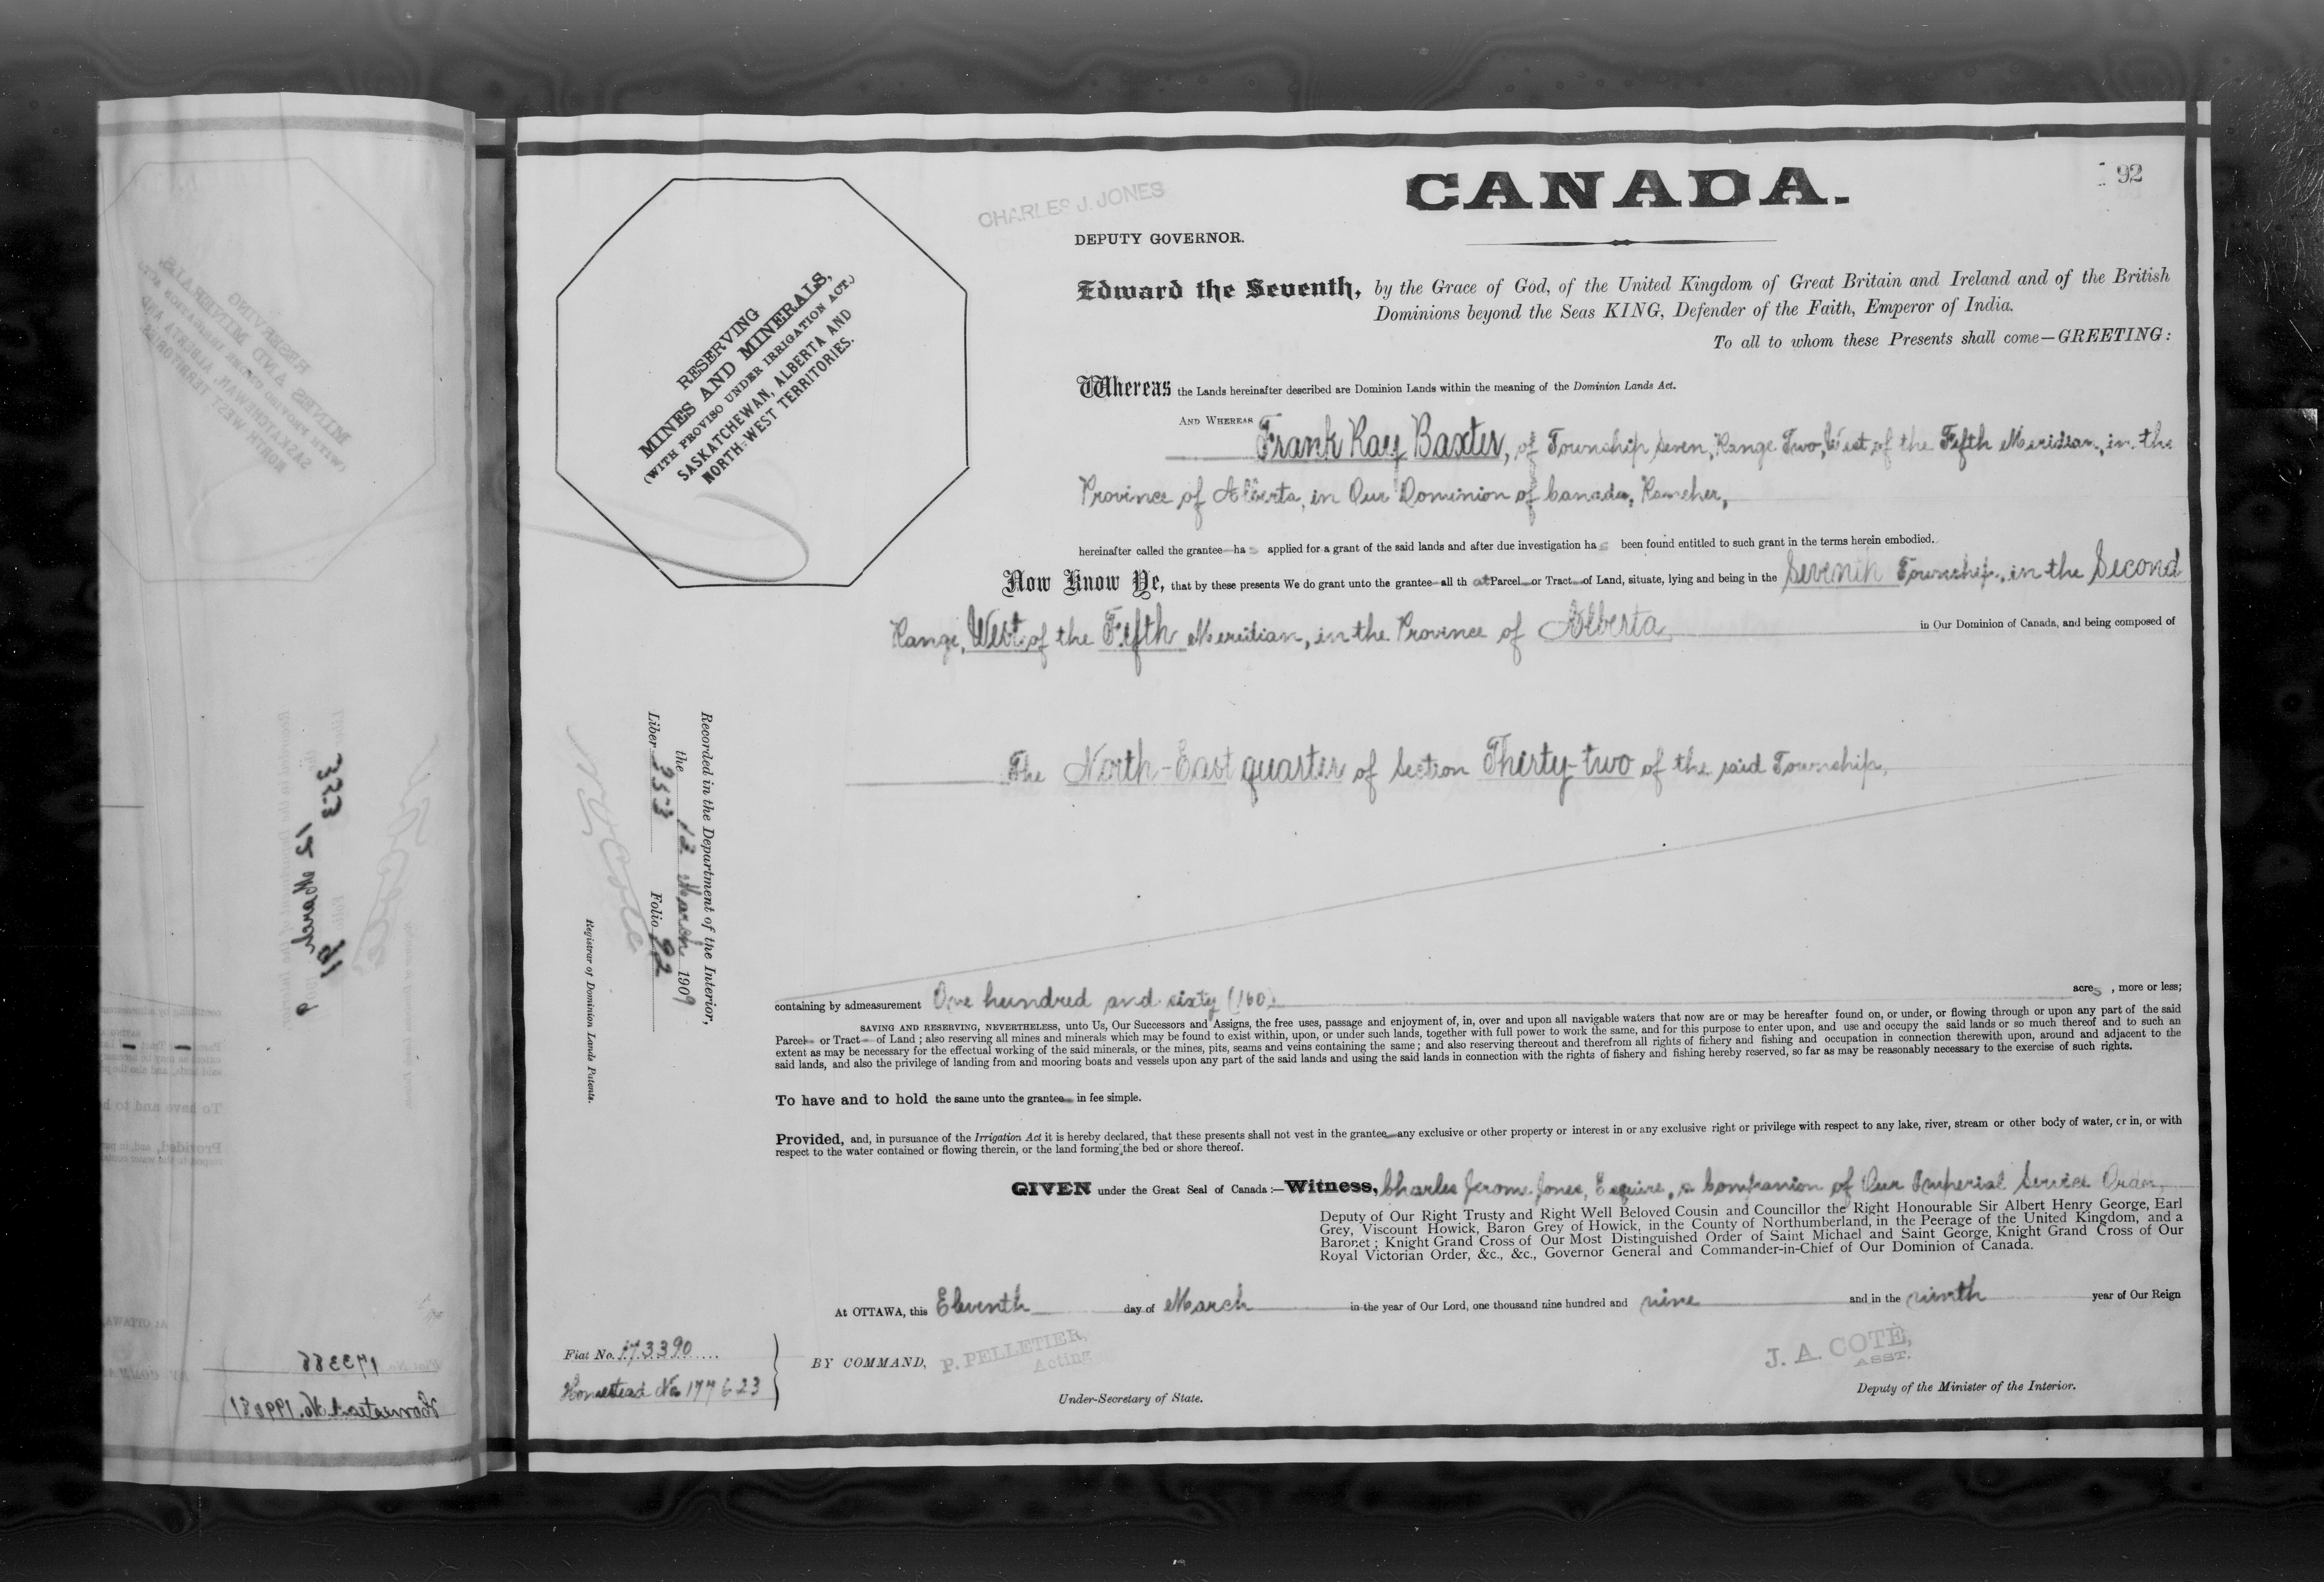 92
CANADA.
CHARLES J. JONES
DEPUTY GOVERNOR.
RESERVING
MINES AND MINERALS,
(WITH PROVISO UNDER IRRIGATION ACT.)
SASKATCHEWAN, ALBERTA AND
NORTH-WEST TERRITORIES.
Edward the Seventh, by the Grace of God, of the United Kingdom of Great Britain and Ireland and of the British
Dominions beyond the Seas KING, Defender of the Faith, Emperor of India.
To all to whom these Presents shall come—GREETING:
Whereas the Lands hereinafter described are Dominion Lands within the meaning of the Dominion Lands Act.
AND WHEREAS Frank Ray Baxter, of Township Seven, Range Two, West of the Fifth Meridian, in the
Province of Alberta, in Our Dominion of Canada, Rancher,
hereinafter called the grantee has applied for a grant of the said lands and after due investigation has been found entitled to such grant in the terms herein embodied.
Now Know Ye, that by these presents We do grant unto the grantee all that Parcel or Tract of Land, situate, lying and being in the Seventh Township, in the Second
Range, West of the Fifth Meridian, in the Province of Alberta in Our Dominion of Canada, and being composed of
The North-East quarter of Section Thirty-two of the said Township,
Recorded in the Department of the Interior,
the 12 March 1909
Liber 353 Folio 92
N O Coté
Registrar of Dominion Lands Patents.
containing by admeasurement One hundred and sixty (160) acres, more or less;
SAVING AND RESERVING, NEVERTHELESS, unto Us, Our Successors and Assigns, the free uses, passage and enjoyment of, in, over and upon all navigable waters that now are or may be hereafter found on, or under, or flowing through or upon any part of the said
Parcel or Tract of Land; also reserving all mines and minerals which may be found to exist within, upon, or under such lands, together with full power to work the same, and for this purpose to enter upon, and use and occupy the said lands or so much thereof and to such an
extent as may be necessary for the effectual working of the said minerals, or the mines, pits, seams and veins containing the same; and also reserving thereout and therefrom all rights of fishery and fishing and occupation in connection therewith upon, around and adjacent to the
said lands, and also the privilege of landing from and mooring boats and vessels upon any part of the said lands and using the said lands in connection with the rights of fishery and fishing hereby reserved, so far as may be reasonably necessary to the exercise of such rights.
To have and to hold the same unto the grantee in fee simple.
Provided, and, in pursuance of the Irrigation Act it is hereby declared, that these presents shall not vest in the grantee any exclusive or other property or interest in or any exclusive right or privilege with respect to any lake, river, stream or other body of water, or in, or with
respect to the water contained or flowing therein, or the land forming the bed or shore thereof.
GIVEN under the Great Seal of Canada:—Witness, Charles Jerome Jones, Esquire, a Companion of Our Imperial Service Order,
Deputy of Our Right Trusty and Right Well Beloved Cousin and Councillor the Right Honourable Sir Albert Henry George, Earl
Grey, Viscount Howick, Baron Grey of Howick, in the County of Northumberland, in the Peerage of the United Kingdom, and a
Baronet; Knight Grand Cross of Our Most Distinguished Order of Saint Michael and Saint George, Knight Grand Cross of Our
Royal Victorian Order, &c., &c., Governor General and Commander-in-Chief of Our Dominion of Canada.
At OTTAWA, this Eleventh day of March in the year of Our Lord, one thousand nine hundred and nine and in the ninth year of Our Reign
Fiat No. 173390
Homestead No. 177623
BY COMMAND, P. PELLETIER,
Acting
Under-Secretary of State.
J. A. COTÉ,
ASST.
Deputy of the Minister of the Interior.